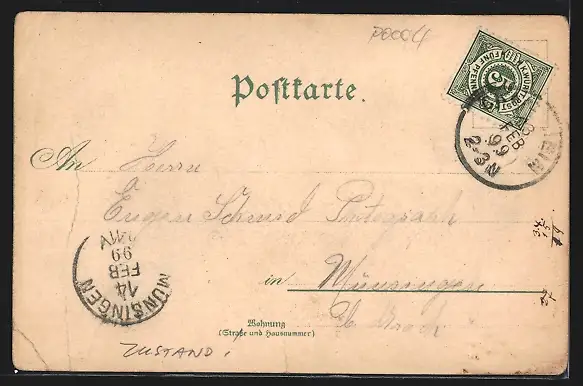 P0004
K.WÜRTT.POST
FÜNF PFENNIG
5
Postkarte.
13 FEB 99 2-3 N
An Herrn
Eugen Schmid Photograph
MÜNSINGEN
14 FEB 99
in Münsingen
Wohnung
(Straße und Hausnummer)
ZUSTAND!